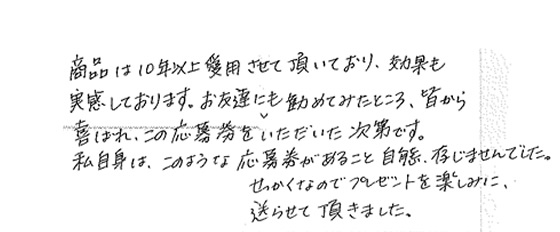 商品は10年以上愛用させて頂いており、効果も
実感しております。お友達にも勧めてみたところ、皆から
喜ばれ、この応募券をいただいた次第です。
私自身は、このような応募券があること自態、存じませんでした。
せっかくなのでプレゼントを楽しみに、
送らせて頂きました。